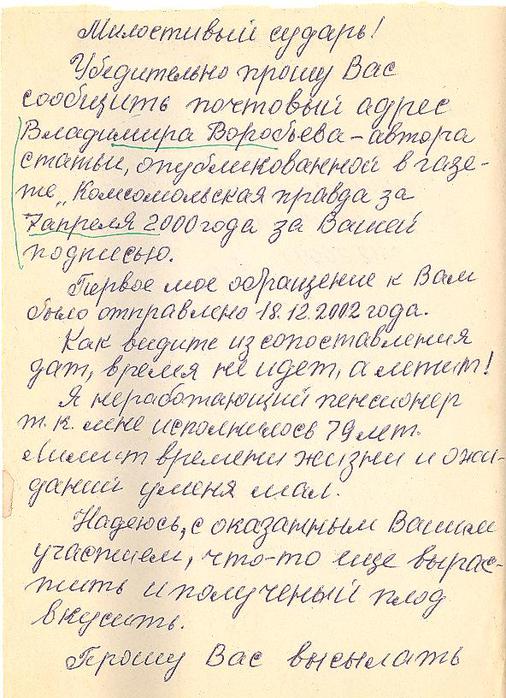 Милостивый сударь!
Убедительно прошу Вас
сообщить почтовый адрес
Владимира Воробьева – автора
статьи, опубликованной в газе-
те „Комсомольская правда за
7 апреля 2000 года за Вашей
подписью.
Первое мое обращение к Вам
было отправлено 18.12.2002 года.
Как видите из сопоставления
дат, время не идет, а летит!
Я неработающий пенсионер
т.к. мне исполнилось 79 лет.
Лимит времени жизни и ожи-
даний у меня мал.
Надеюсь, с оказанным Вашим
участием, что-то еще вырас-
тить и полученый плод
вкусить.
Прошу Вас высылать